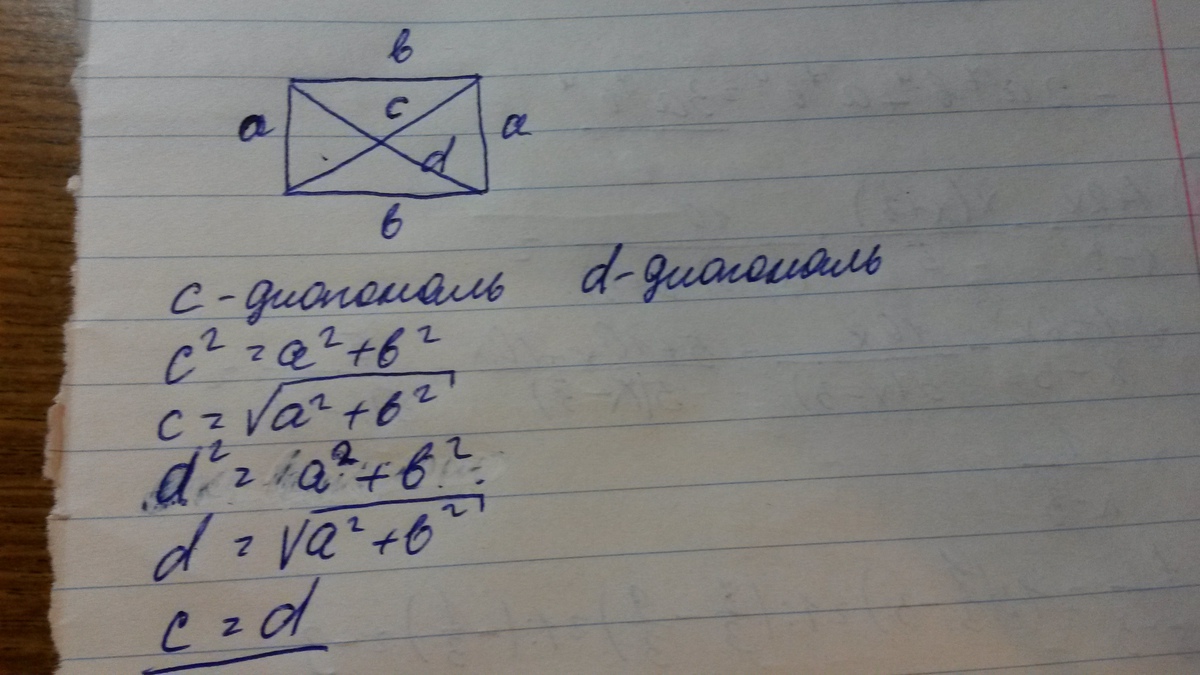 в
a
c
a
d
в
c - диагональ d - диагональ
c² = a² + в²
c = √a² + в²
d² = a² + в²
d = √a² + в²
c = d